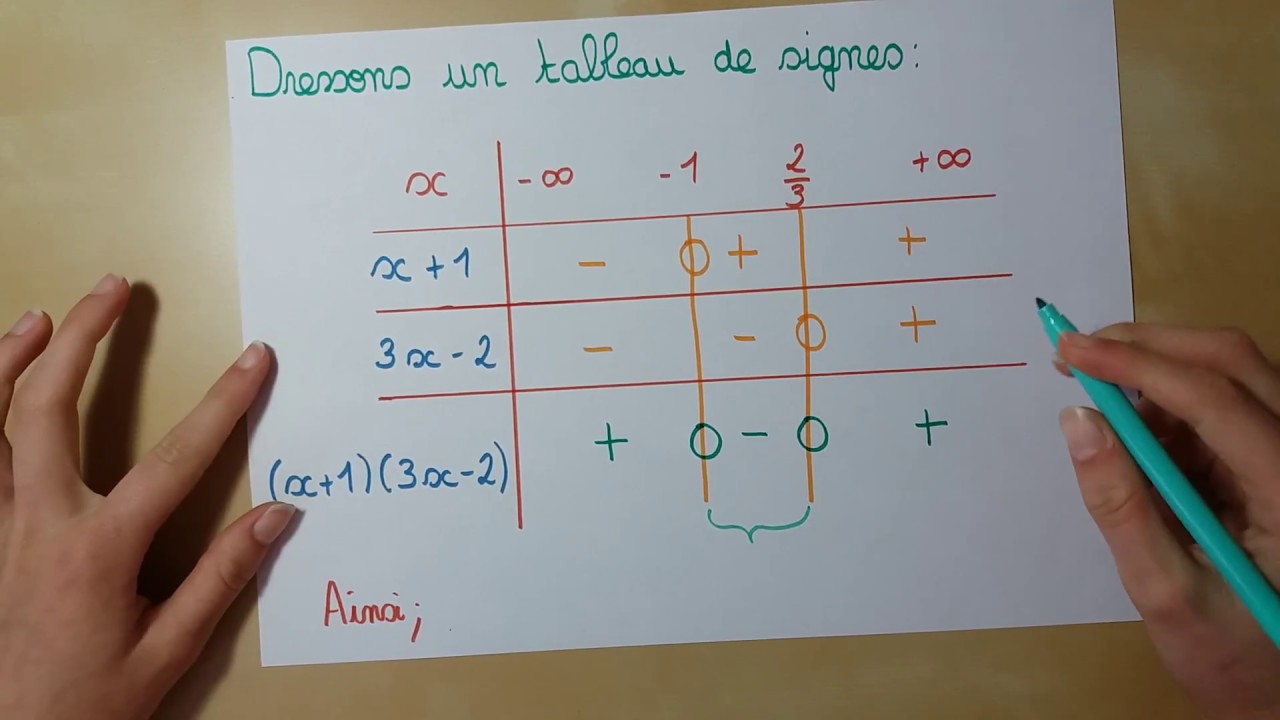 Dressons un tableau de signes :
x -∞ -1 2/3 +∞
x + 1 - 0 + +
3x - 2 - - 0 +
(x+1)(3x-2) + 0 - 0 +
Ainsi ;